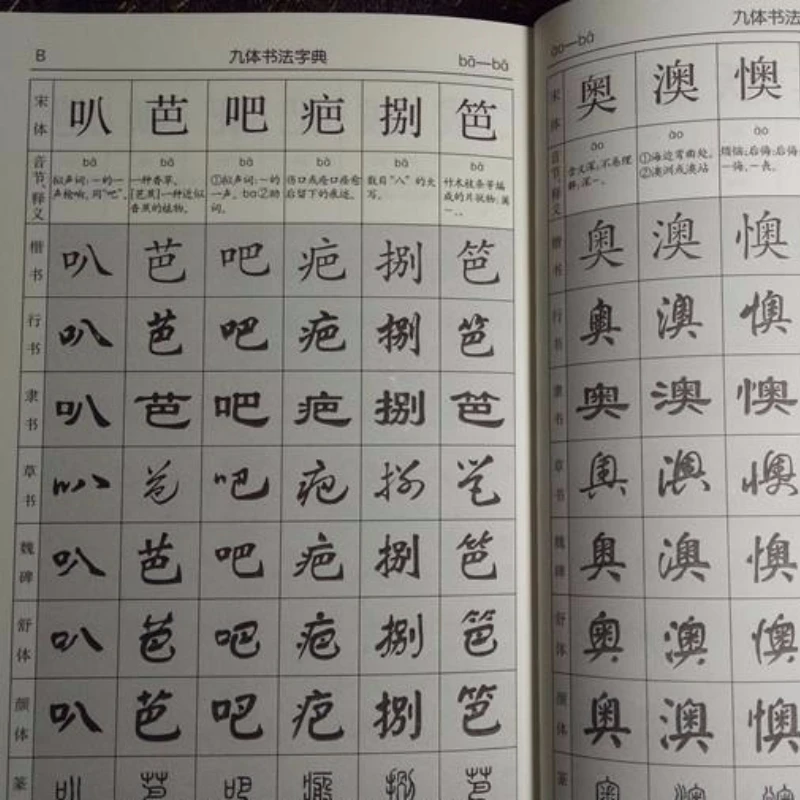 B 九体书法字典 bā—bā
宋体 叭 芭 吧 疤 捌 笆
音节、释义
bā 拟声词:一的一声枪响。同"吧"。
bā 一种香草。[芭蕉]一种近似香蕉的植物。
bā ①拟声词:一的一声。ba②助词。
bā 伤口或疮口痊愈后留下的痕迹。
bā 数目"八"的大写。
bā 竹木枝条等编成的片状物:篱一。
楷书 叭 芭 吧 疤 捌 笆
行书 叭 芭 吧 疤 捌 笆
隶书 叭 芭 吧 疤 捌 笆
草书 叭 芭 吧 疤 捌 笆
魏碑 叭 芭 吧 疤 捌 笆
舒体 叭 芭 吧 疤 捌 笆
颜体 叭 芭 吧 疤 捌 笆
篆 叭 芭 吧 疤 捌 笆
ào—bā 九体书法
宋体 奥 澳 懊
音节、释义
ào 含义深,不易理解:深一。
ào ①海边弯曲处。②澳洲或澳站
ào 烦恼;后悔:一悔,一丧。
楷书 奥 澳 懊
行书 奥 澳 懊
隶书 奥 澳 懊
草书 奥 澳 懊
魏碑 奥 澳 懊
舒体 奥 澳 懊
颜体 奥 澳 懊
篆 奥 澳 懊